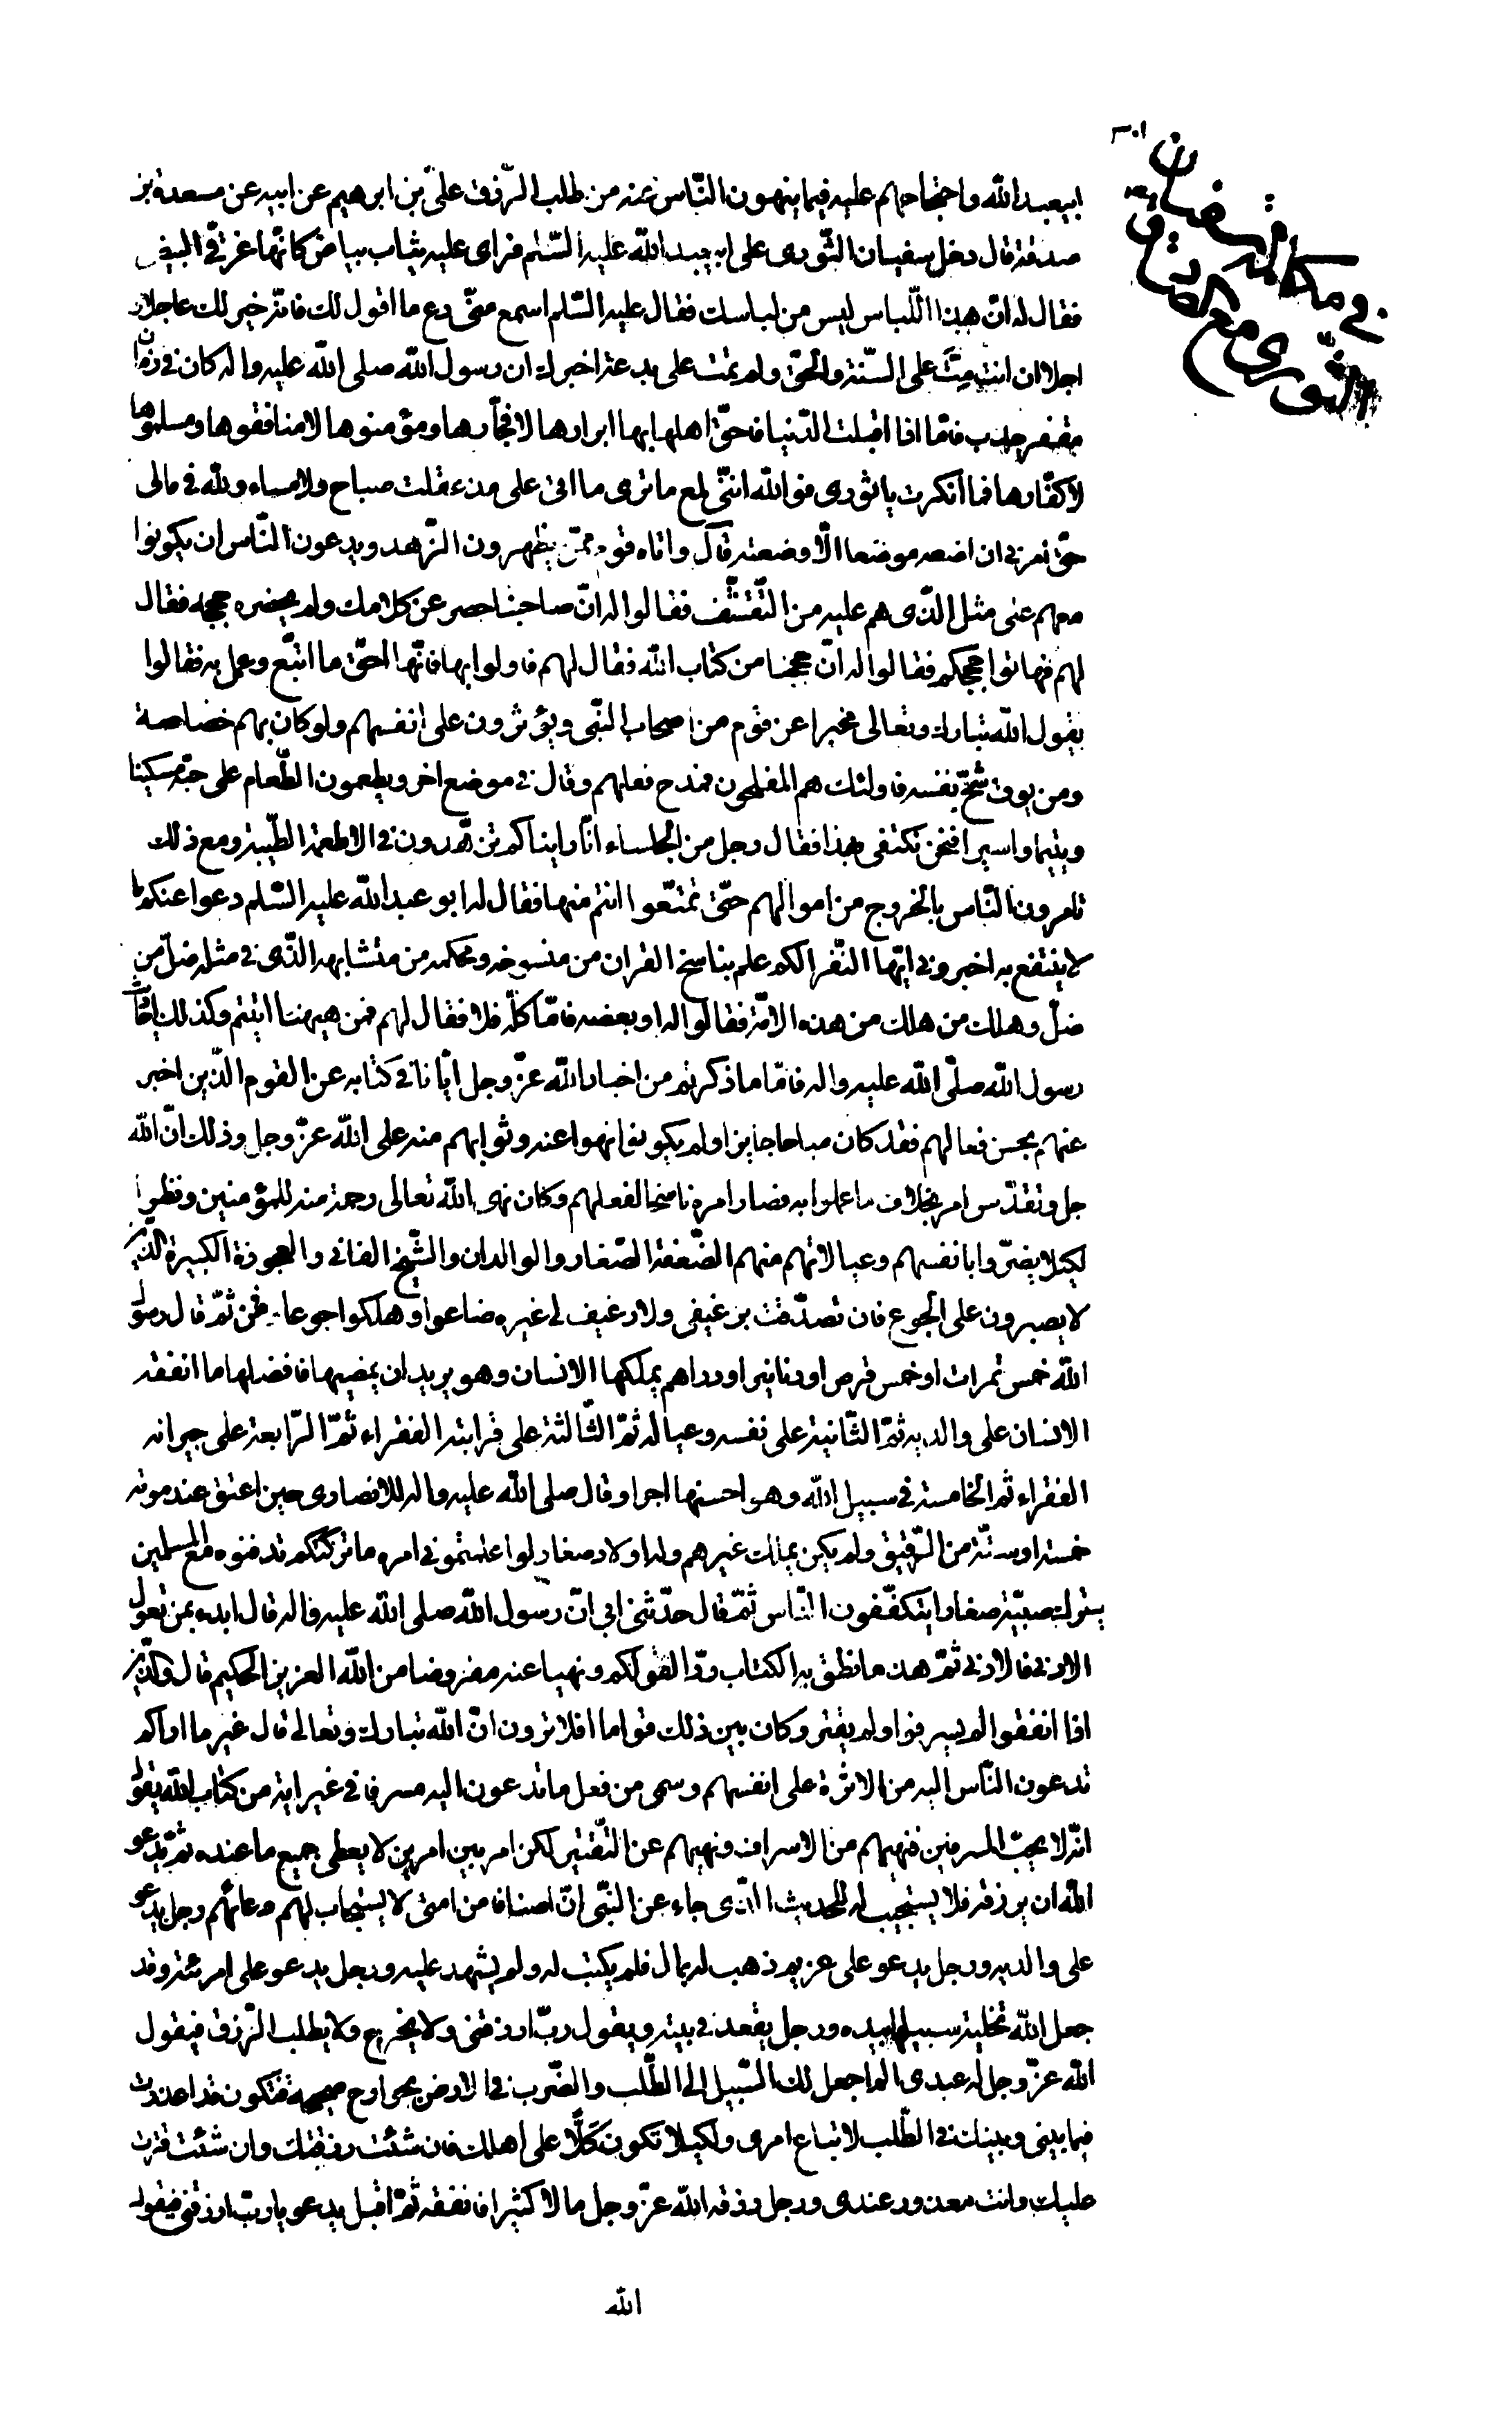 ٣٠١
في مكالمة سفيان
الثوري مع الصادق ع
ابيعبد الله واحتجاجهم عليه فيما ينهون النّاس عنه من طلب الرّزق علىّ بن ابرهيم عن ابيه عن مسعدة بن
صدقة قال دخل سفيان الثّوري على ابيعبد الله عليه السّلم فراى عليه ثياب بياض كانّها غرقئ البيض
فقال له انّ هذا اللّباس ليس من لباسك فقال عليه السّلم اسمع منّى وع ما اقول لك فانّه خير لك عاجلا و
اجلا ان انت متّ على السّنّة والحقّ ولم تمت على بدعة اخبرك ان رسول الله صلى الله عليه واله كان في زمان
مقفر جدب فامّا اذا اقبلت الدّنيا فاحقّ اهلها بها ابرارها لا فجّارها ومؤمنوها لا منافقوها ومسلموها
لا كفّارها فما انكرت يا ثورى فوالله انّنى لمع ما ترى ما اتى على مذ عقلت صباح ولا مساء ولله في مالى
حقّ امرنى ان اضعه موضعا الّا وضعته قال واتاه قوم ممّن يظهرون الزّهد ويدعون النّاس ان يكونوا
معهم على مثل الّذى هم عليه من التّقشّف فقالوا له انّ صاحبنا حصر عن كلامك ولم يحضره حججه فقال
لهم فهاتوا حججكم فقالوا له انّ حججنا من كتاب الله فقال لهم فاولوا بها فانّها احقّ ما اتّبع وعمل به فقالوا
يقول الله تبارك وتعالى مخبرا عن قوم من اصحاب النّبى ويؤثرون على انفسهم ولو كان بهم خصاصة
ومن يوق شحّ نفسه فاولئك هم المفلحون فمدح فعلهم وقال في موضع اخر ويطعمون الطّعام على حبّه مسكينا
ويتيما واسيرا فنحن نكتفى بهذا فقال رجل من الجلساء انّا رايناكم تزهّدون في الاطعمة الطّيبة ومع ذلك
تامرون النّاس بالخروج من اموالهم حتّى تمتّعوا انتم منها فقال له ابو عبد الله عليه السّلم دعوا عنكم ما
لا ينتفع به اخبرونى ايّها النّفر الكم علم بناسخ القران من منسوخه ومحكمه من متشابهه الّذى في مثله ضلّ من
ضلّ وهلك من هلك من هذه الامّة فقالوا له او بعضه فامّا كلّه فلا فقال لهم فمن هيهنا اتيتم وكذلك احاديث
رسول الله صلّى الله عليه واله فامّا ما ذكرتم من اخبار الله عزّ وجل ايّانا في كتابه عن القوم الّذين اخبر
عنهم بحسن فعالهم فقد كان مباحا جايزا ولم يكونوا نهوا عنه وثوابهم منه على الله عزّ وجل وذلك انّ الله
جل وتقدّس امر بخلاف ما عملوا به فصار امره ناسخا لفعلهم وكان نهى الله تعالى رحمة منه للمؤمنين ونظرا
لكيلا يضرّوا بانفسهم وعيالاتهم منهم الضّعفة الصّغار والوالدان والشّيخ الفانى والعجوزة الكبيرة الّذين
لا يصبرون على الجوع فان تصدّقت برغيفى ولا رغيف لى غيره ضاعوا وهلكوا جوعا فمن ثمّ قال رسول
الله خمس تمرات او خمس قرص او دنانير او دراهم يملكها الانسان وهو يريد ان يمضيها فافضلها ما انفقه
الانسان على والديه ثمّ الثّانية على نفسه وعياله ثمّ الثّالثة على قرابته الفقراء ثمّ الرّابعة على جيرانه
الفقراء ثم الخامسة في سبيل الله وهو احسنها اجرا وقال صلى الله عليه واله للانصارى حين اعتق عند موته
خمسة او ستّة من الرّقيق ولم يكن يملك غيرهم وله اولاد صغار لو اعلمتمونى امره ما تركتكم تدفنوه مع المسلمين
يترك صبيّة صغارا يتكفّفون النّاس ثمّ قال حدّثنى ابى انّ رسول الله صلى الله عليه واله قال ابدء بمن تعول
الادنى فالادنى ثمّ هذا ما نطق به الكتاب ردّا لقولكم ونهيا عنه مفروضا من الله العزيز الحكيم قال والّذين
اذا انفقوا لم يسرفوا ولم يقتروا وكان بين ذلك قواما افلا ترون انّ الله تبارك وتعالى قال غير ما اراكم
تدعون النّاس اليه من الاثرة على انفسهم وسمى من فعل ما تدعون اليه مسرفا في غير اية من كتاب الله يقول
انّه لا يحبّ المسرفين فنهيهم من الاسراف ونهيهم عن التّقتير لكن امر بين امرين لا يعطى جميع ما عنده ثمّ يدعو
الله ان يرزقه فلا يستجيب له للحديث الّذى جاء عن النّبى انّ اصنافا من امتى لا يستجاب لهم دعائهم رجل يدعو
على والديه ورجل يدعو على غريم ذهب له بمال فلم يكتب له ولم يشهد عليه ورجل يدعو على امرئته وقد
جعل الله تخلية سبيلها بيده ورجل يقعد في بيته ويقول ربّ ارزقنى ولا يخرج ولا يطلب الرّزق فيقول
الله عزّ وجل له عبدى الم اجعل لك السّبيل الى الطّلب والضّرب في الارض بجوارح صحيحة فتكون قد اعذرت
فيما بينى وبينك في الطّلب لاتباع امرى ولكيلا تكون كلّا على اهلك فان شئت رزقتك وان شئت قترت
عليك وانت معذور عندى ورجل رزقه الله عزّ وجل مالا كثيرا فانفقه ثمّ اقبل يدعو يا ربّ ارزقنى فيقول
الله